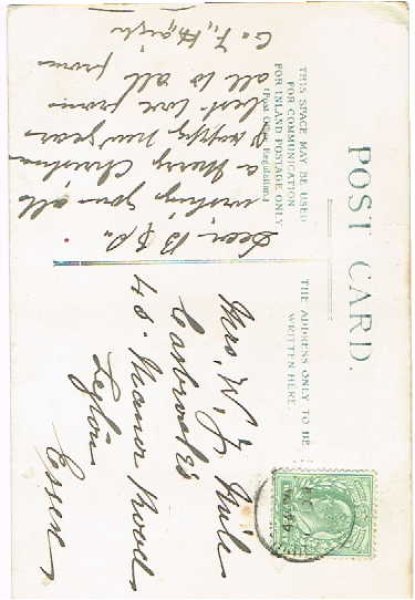 POST CARD.
THIS SPACE MAY BE USED
FOR COMMUNICATION
FOR INLAND POSTAGE ONLY
(Post Office Regulation)
THE ADDRESS ONLY TO BE
WRITTEN HERE.
Dear B & P.
wishing you all
a merry Christmas
& happy new year
best love from
all to all from
G. F.
Mrs. W. J.
48. Manor Road
Leyton
Essex